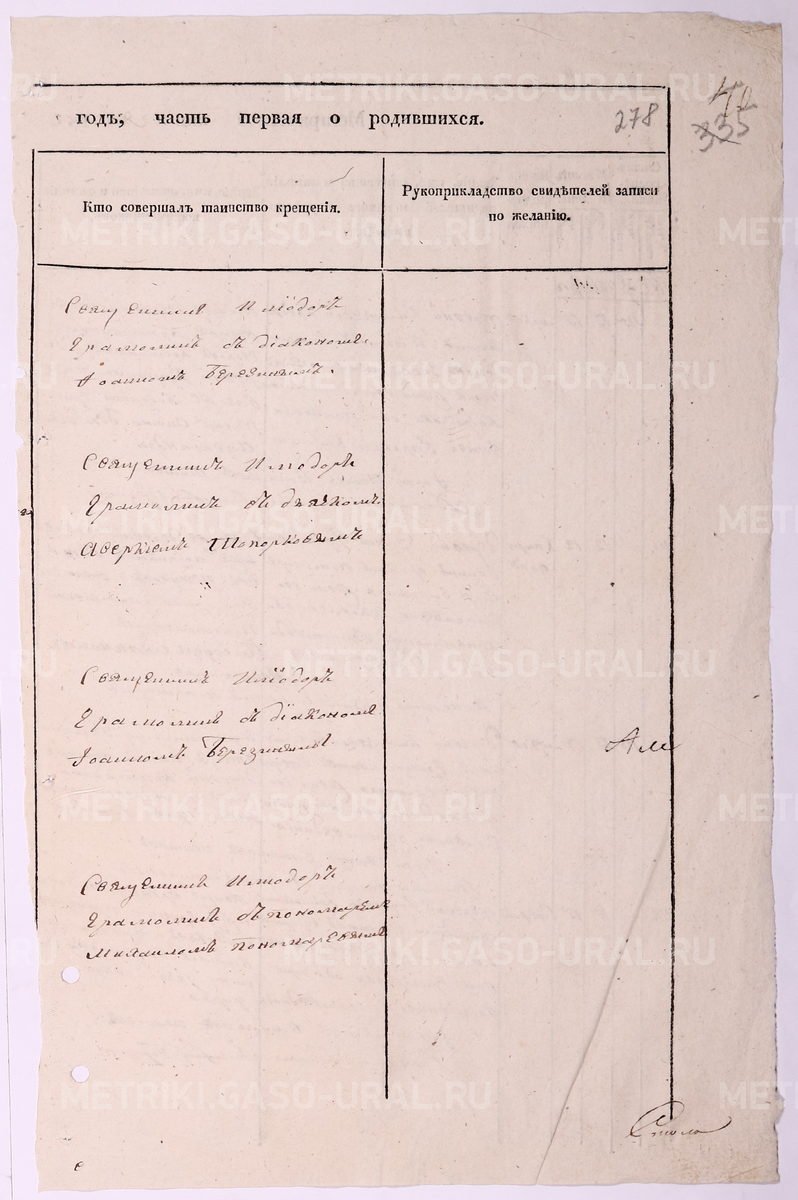 годъ, часть первая о родившихся.
278
335
Кто совершалъ таинство крещенія.
Рукоприкладство свидѣтелей записи
по желанію.
Священникъ Иліодоръ
Грамолинъ съ діакономъ
Іоанномъ Березинымъ.
Священникъ Иліодоръ
Грамолинъ съ дьячкомъ
Аверкіемъ Топорковымъ
Священникъ Иліодоръ
Грамолинъ съ діакономъ
Іоанномъ Березинымъ
Священникъ Иліодоръ
Грамолинъ съ пономаремъ
Михаиломъ Пономаревымъ
METRIKI.GASO-URAL.RU